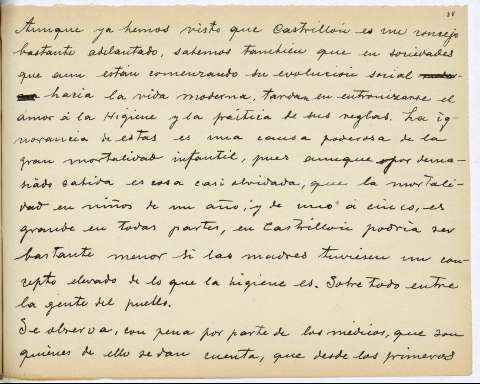 38
Aunque ya hemos visto que Castrillón es un consejo
bastante adelantado, sabemos también que en sociedades
que aun están comenzando su evolución social
hacia la vida moderna, tardan en entronizarse el
amor á la Higiene y la práctica de sus reglas. La ig-
norancia de estas es una causa poderosa de la
gran mortalidad infantil, pues aunque por dema-
siado sabida es cosa casi olvidada, que la mortali-
dad en niños de un año, y de uno á cinco, es
grande en todas partes, en Castrillón podría ser
bastante menor si las madres tuviesen un con-
cepto elevado de lo que la higiene es. Sobre todo entre
la gente del pueblo.
Se observa, con pena por parte de los médicos, que son
quienes de ello se dan cuenta, que desde los primeros